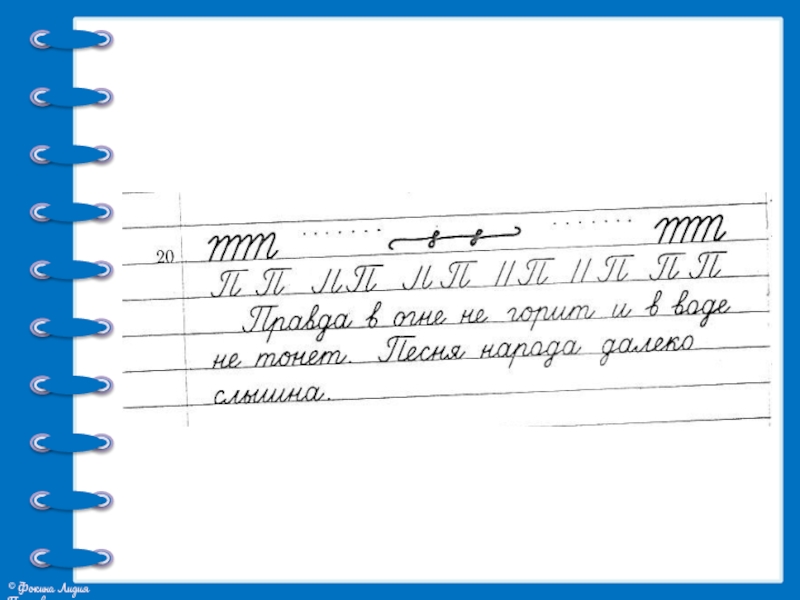 тт тт
20
П П ЛП ЛП IIП IIП П П
Правда в огне не горит и в воде
не тонет. Песня народа далеко
слышна.
© Фокина Лидия